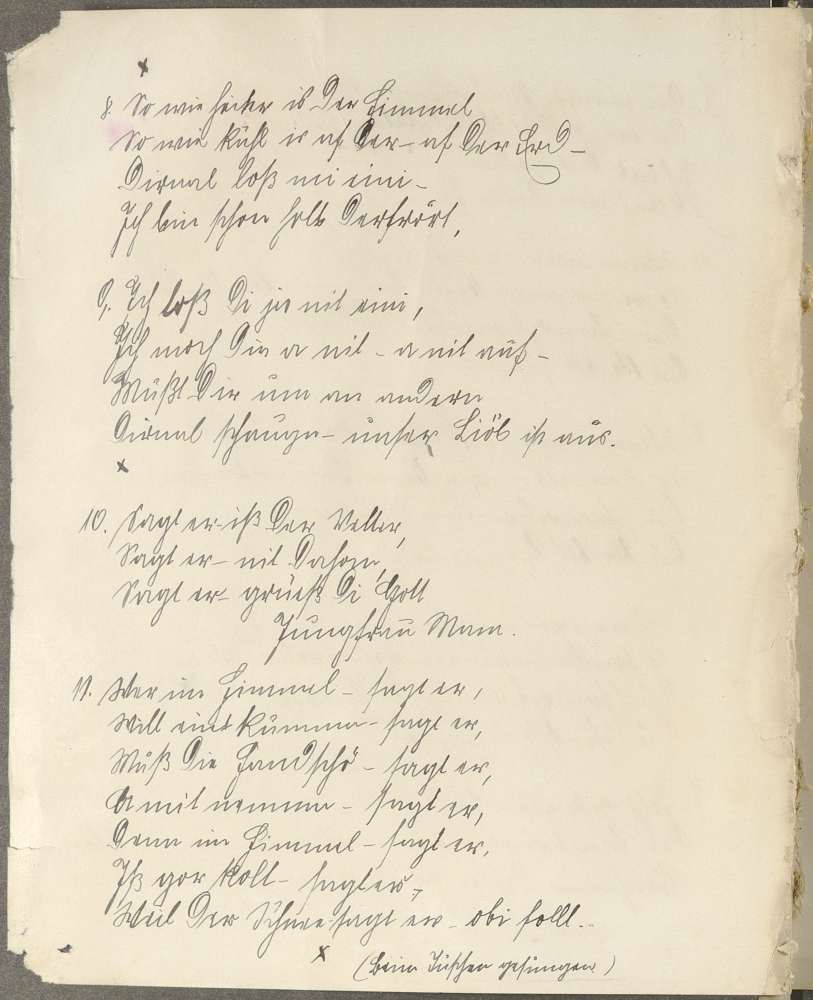 x
8. So wie heiter is der Himmel
So wie kühl is af der – af der Erd –
Dirnal loß mi eini –
Ich bin schon holb derfrört,
9. Ich loß Di ja nit eini,
Ich moch Dir a nit – a nit auf –
Mußt Dir um an andern
Dirnal schaugn – unser Liöb ist aus.
x
10. Sagt er – iß der Vetter,
Sagt er – nit Dahom,
Sagt er – grüeß Di Gott
Jungfrau Mam.
11. Wer im Himmel – sagt er,
Will eini kumma – sagt er,
Muß die Handschö – sagt er,
A mit nemma – sagt er,
Denn im Himmel – sagt er,
Iß gor kolt – sagt er,
Weil der Schnee sagt er – obi follt.
x
(Beim gesungen)